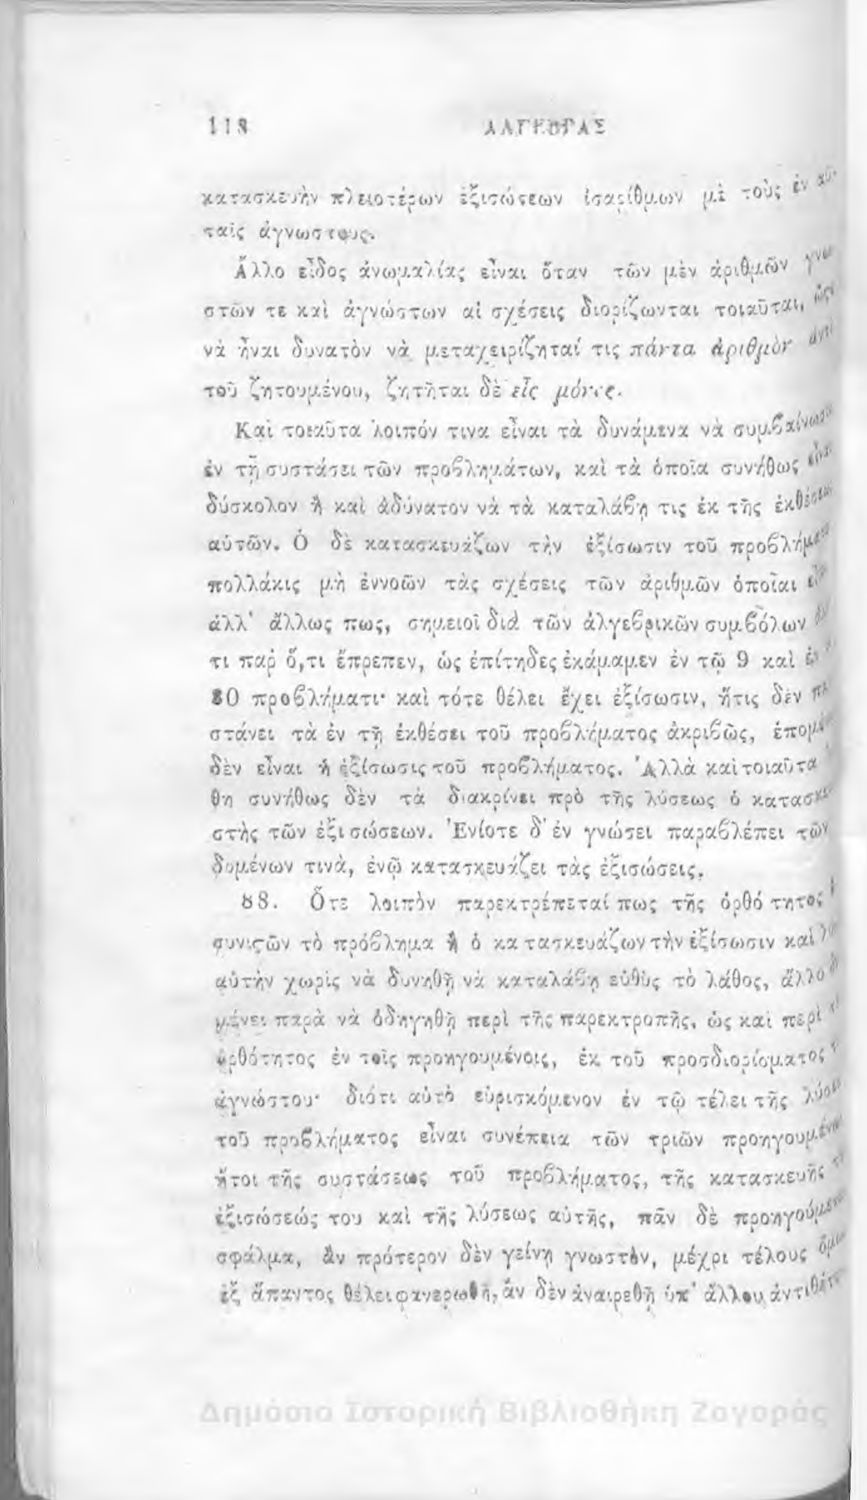 118 ΑΛΓΕΒΡΑΣ
κατασκευὴν πλειοτέρων ἐξισώσεων ἰσαρίθμων μὲ τοὺς ἐν
ταῖς ἀγνώστους.
Ἄλλο εἶδος ἀνωμαλίας εἶναι ὅταν τῶν μὲν ἀριθμῶν
στῶν τε καὶ ἀγνώστων αἱ σχέσεις διορίζωνται τοιαῦται,
νὰ ἦναι δυνατὸν νὰ μεταχειρίζηταί τις πάντα ἀριθμὸν
τοῦ ζητουμένου, ζητῆται δὲ εἷς μόνος.
Καὶ τοιαῦτα λοιπόν τινα εἶναι τὰ δυνάμενα νὰ
ἐν τῇ συστάσει τῶν προβλημάτων, καὶ τὰ ὁποῖα συνήθως
δύσκολον ἢ καὶ ἀδύνατον νὰ τὰ καταλάβῃ τις ἐκ τῆς
αὐτῶν. Ὁ δὲ κατασκευάζων τὴν ἐξίσωσιν τοῦ
πολλάκις μὴ ἐννοῶν τὰς σχέσεις τῶν ἀριθμῶν ὁποῖαι
ἀλλ' ἄλλως πως, σημειοῖ διὰ τῶν ἀλγεβρικῶν συμβόλων
τι παρ ὅ,τι ἔπρεπεν, ὡς ἐπίτηδες ἐκάμαμεν ἐν τῷ 9 καὶ
80 προβλήματι· καὶ τότε θέλει ἔχει ἐξίσωσιν, ἥτις δὲν
στάνει τὰ ἐν τῇ ἐκθέσει τοῦ προβλήματος ἀκριβῶς,
δὲν εἶναι ἡ ἐξίσωσις τοῦ προβλήματος. Ἀλλὰ καὶ τοιαῦτα
θη συνήθως δὲν τὰ διακρίνει πρὸ τῆς λύσεως ὁ
στὴς τῶν ἐξισώσεων. Ἐνίοτε δ' ἐν γνώσει παραβλέπει τῶν
δομένων τινὰ, ἐνῷ κατασκευάζει τὰς ἐξισώσεις.
88. Ὅτε λοιπὸν παρεκτρέπεταί πως τῆς ὀρθότητος
συνιστῶν τὸ πρόβλημα ἢ ὁ κατασκευάζων τὴν ἐξίσωσιν καὶ
αὐτὴν χωρὶς νὰ δυνηθῇ νὰ καταλάβῃ εὐθὺς τὸ λάθος,
μένει παρὰ νὰ ὁδηγηθῇ περὶ τῆς παρεκτροπῆς, ὡς καὶ περὶ
ὀρθότητος ἐν τοῖς προηγουμένοις, ἐκ τοῦ προσδιορίσματος
ἀγνώστου· διότι αὐτὸ εὑρισκόμενον ἐν τῷ τέλει τῆς
τοῦ προβλήματος εἶναι συνέπεια τῶν τριῶν
ἤτοι τῆς συστάσεως τοῦ προβλήματος, τῆς κατασκευῆς
ἐξισώσεώς του καὶ τῆς λύσεως αὐτῆς, πᾶν δὲ
σφάλμα, ἂν πρότερον δὲν γείνῃ γνωστὸν, μέχρι τέλους
ἐξ ἅπαντος θέλει φανερωθῆ, ἂν δὲν ἀναιρεθῇ ὑπ' ἄλλου
Δημόσια Ιστορική Βιβλιοθήκη Ζαγοράς